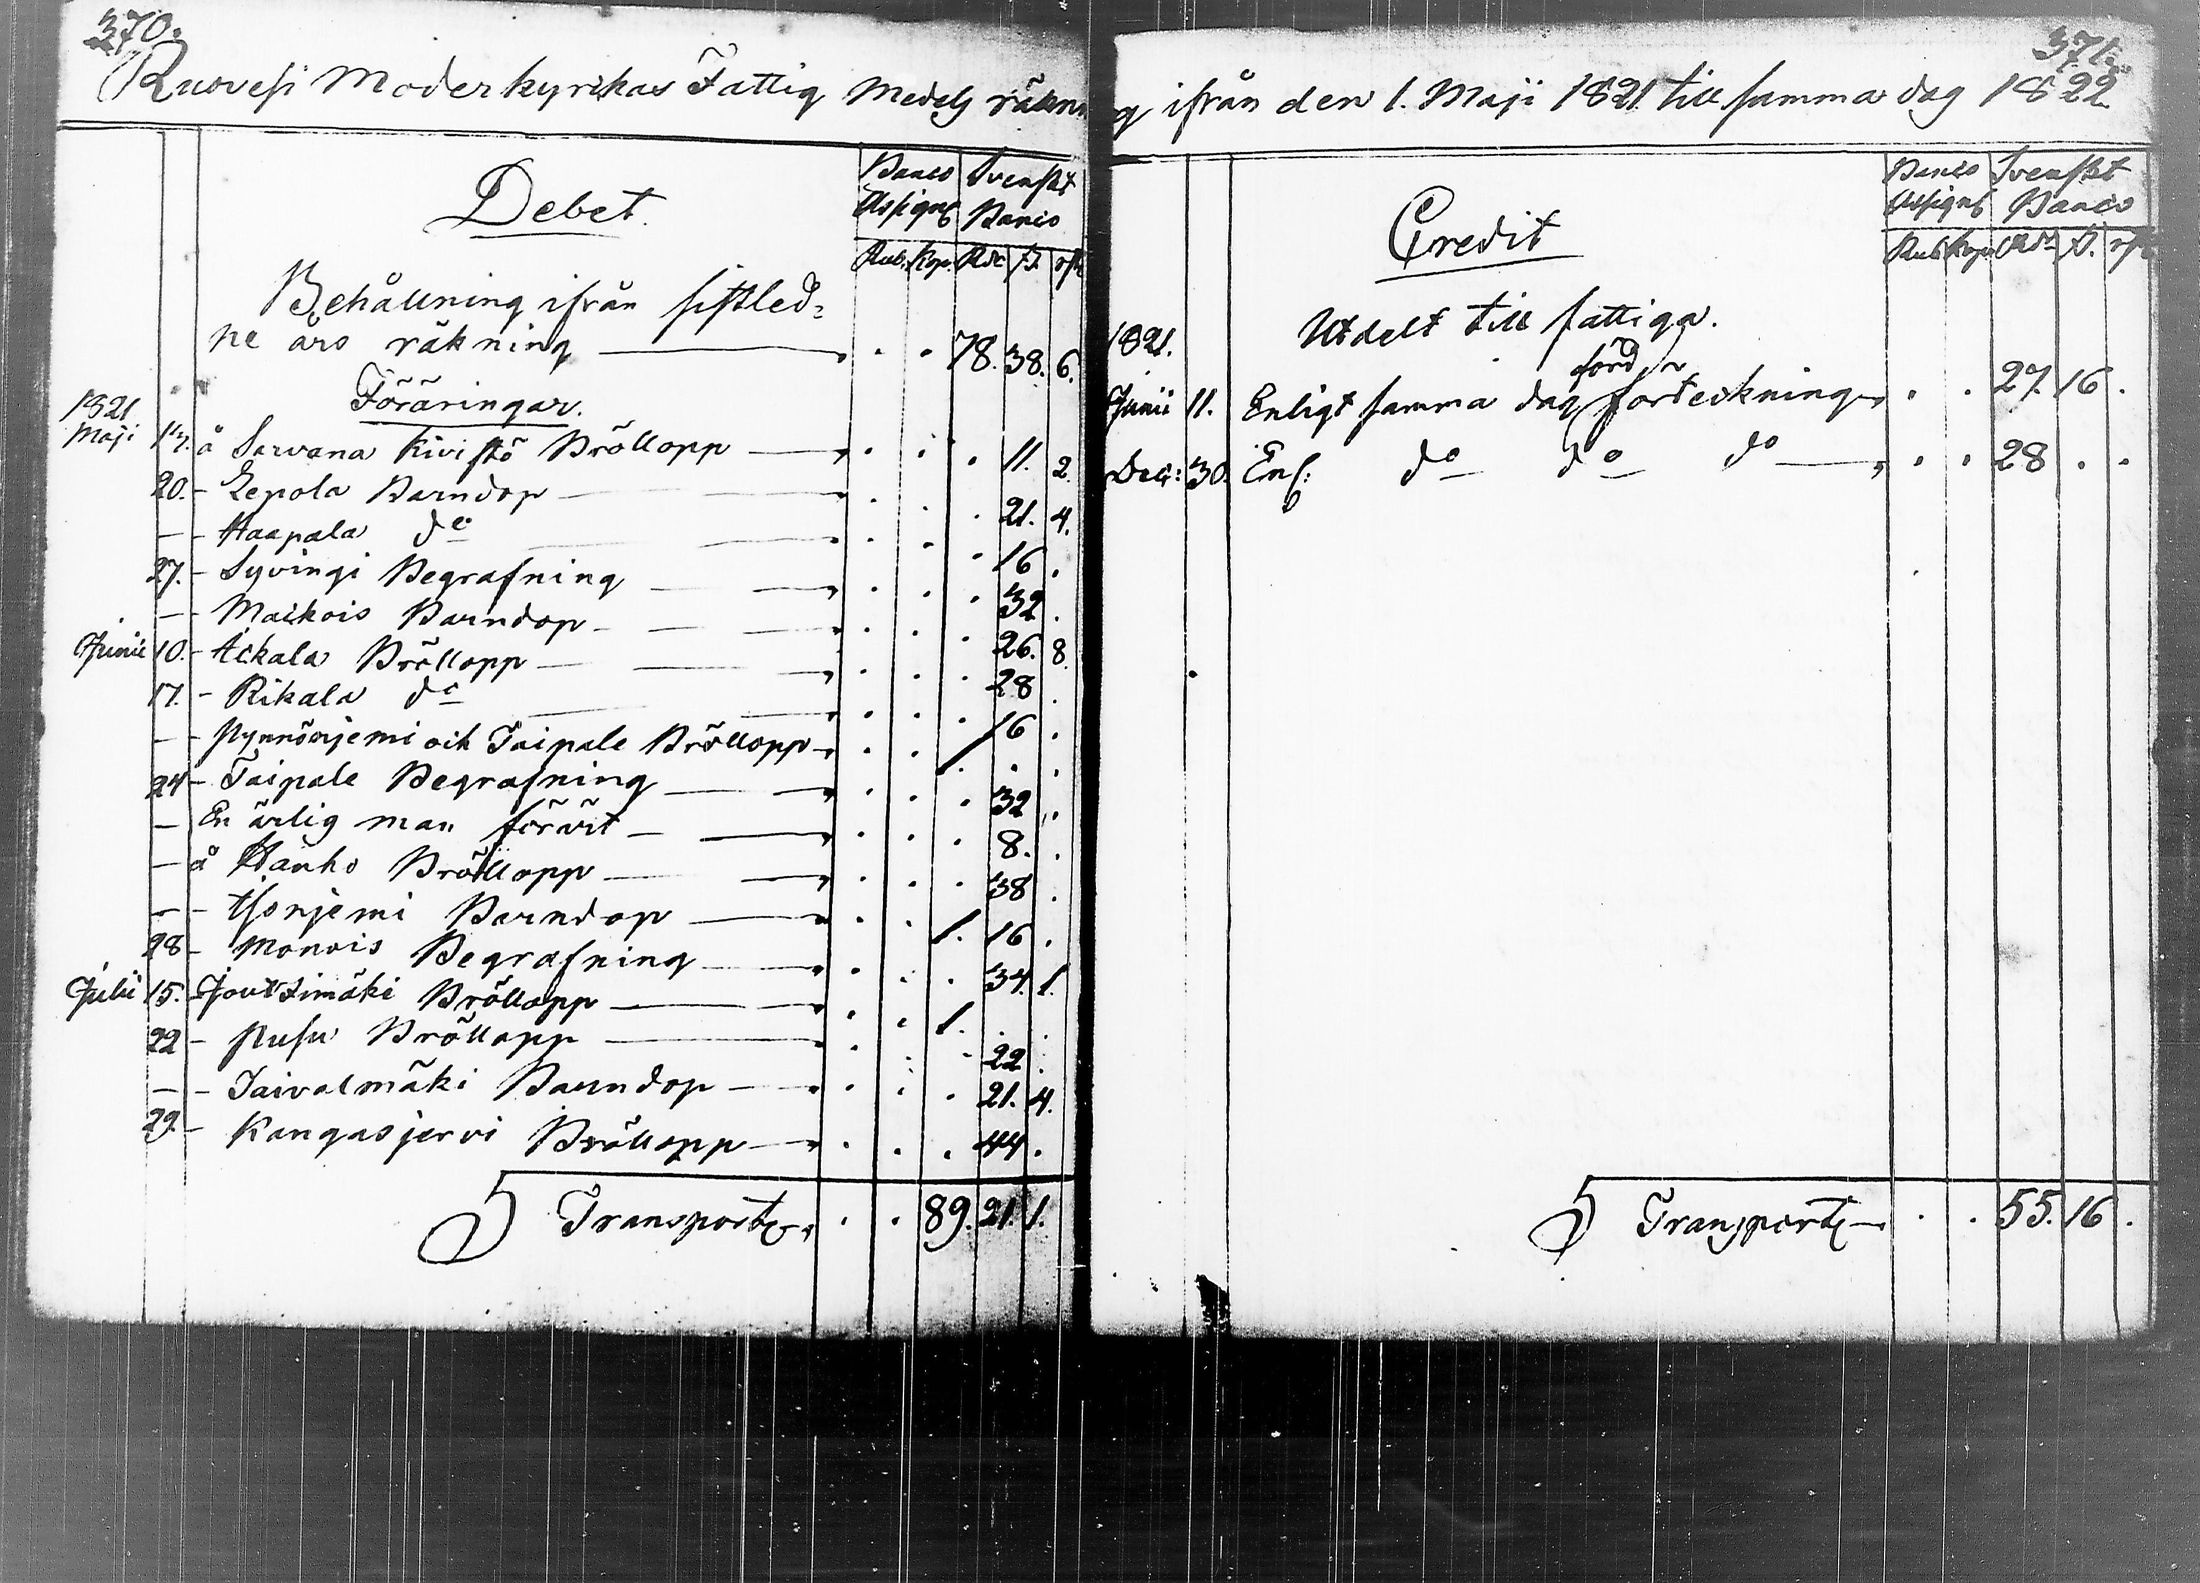 370.
Ruovesi Moderkyrkas Fattig Medels räkning
Debet.
Banco Assigns
Svenskt Banco
Rub. Kop. Rdr ß. rst
Behållning ifrån sistled=
ne års räkning — . . 78. 38. 6.
Föräringar.
1821
Maji 13. å Sarvana Kivistö Bröllopp — . . . 11. 2.
20. - Lepola Barndop — . . . 21. 4.
— - Haapala do — . . . 16 .
27. - Syvingi Begrafning — . . . 32 .
— - Maikois Barndop — . . . 26. 8.
Junii 10. - Ackala Bröllopp — . . . 28 .
17. - Rikala do — . . . 16 .
— - Pynnöniemi och Taipale Bröllopp — . . 1. . .
24 - Taipale Begrafning — . . . 32 .
— En ärlig man förärt — . . . 8. .
— å Hanho Bröllopp — . . . 38 .
— - Barndop — . . 1. 16 .
28 - Monois Begrafning — . . . 34. 1.
Julii 15. - Bröllopp — . . 1. . .
22 - Rusu Bröllopp — . . . 22 .
— - Taivalmäki Barndop — . . . 21. 4.
29. - Kangasjervi Bröllopp — . . . 44 .
Transport — . . 89. 21. 1.
371.
ifrån den 1. Maji 1821 till samma dag 1822
Credit
Banco Assigns
Svenskt Banco
Rub. Kop. Rdr ß. rst
Utdelt till fattiga.
1821.
förd
Junii 11. Enligt samma dag förteckning — . . 27. 16 .
Dec: 30. Enl: do do do — . . 28 . .
Transport — . . 55. 16 .